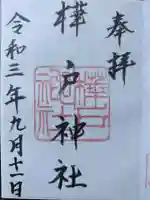 奉拝
樺戸神社
令和三年九月十一日